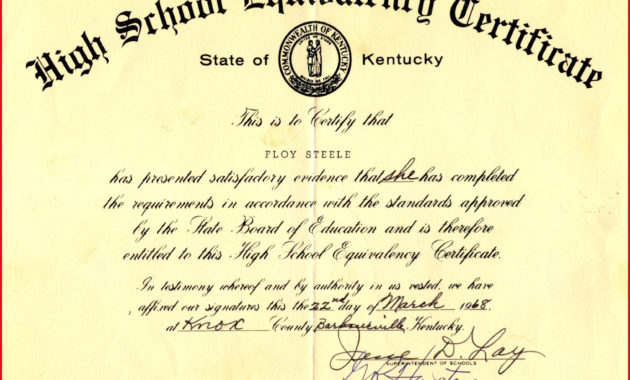 High School Equivalency Certificate
State of Kentucky
COMMONWEALTH OF KENTUCKY
This is to Certify that
FLOY STEELE
has presented satisfactory evidence that she has completed
the requirements in accordance with the standards approved
by the State Board of Education and is therefore
entitled to this High School Equivalency Certificate.
In testimony whereof and by authority in us vested, we have
affixed our signatures this the 22nd day of March 1968
at Knox County Barbourville, Kentucky.
Jesse D. Lay
SUPERINTENDENT OF SCHOOLS